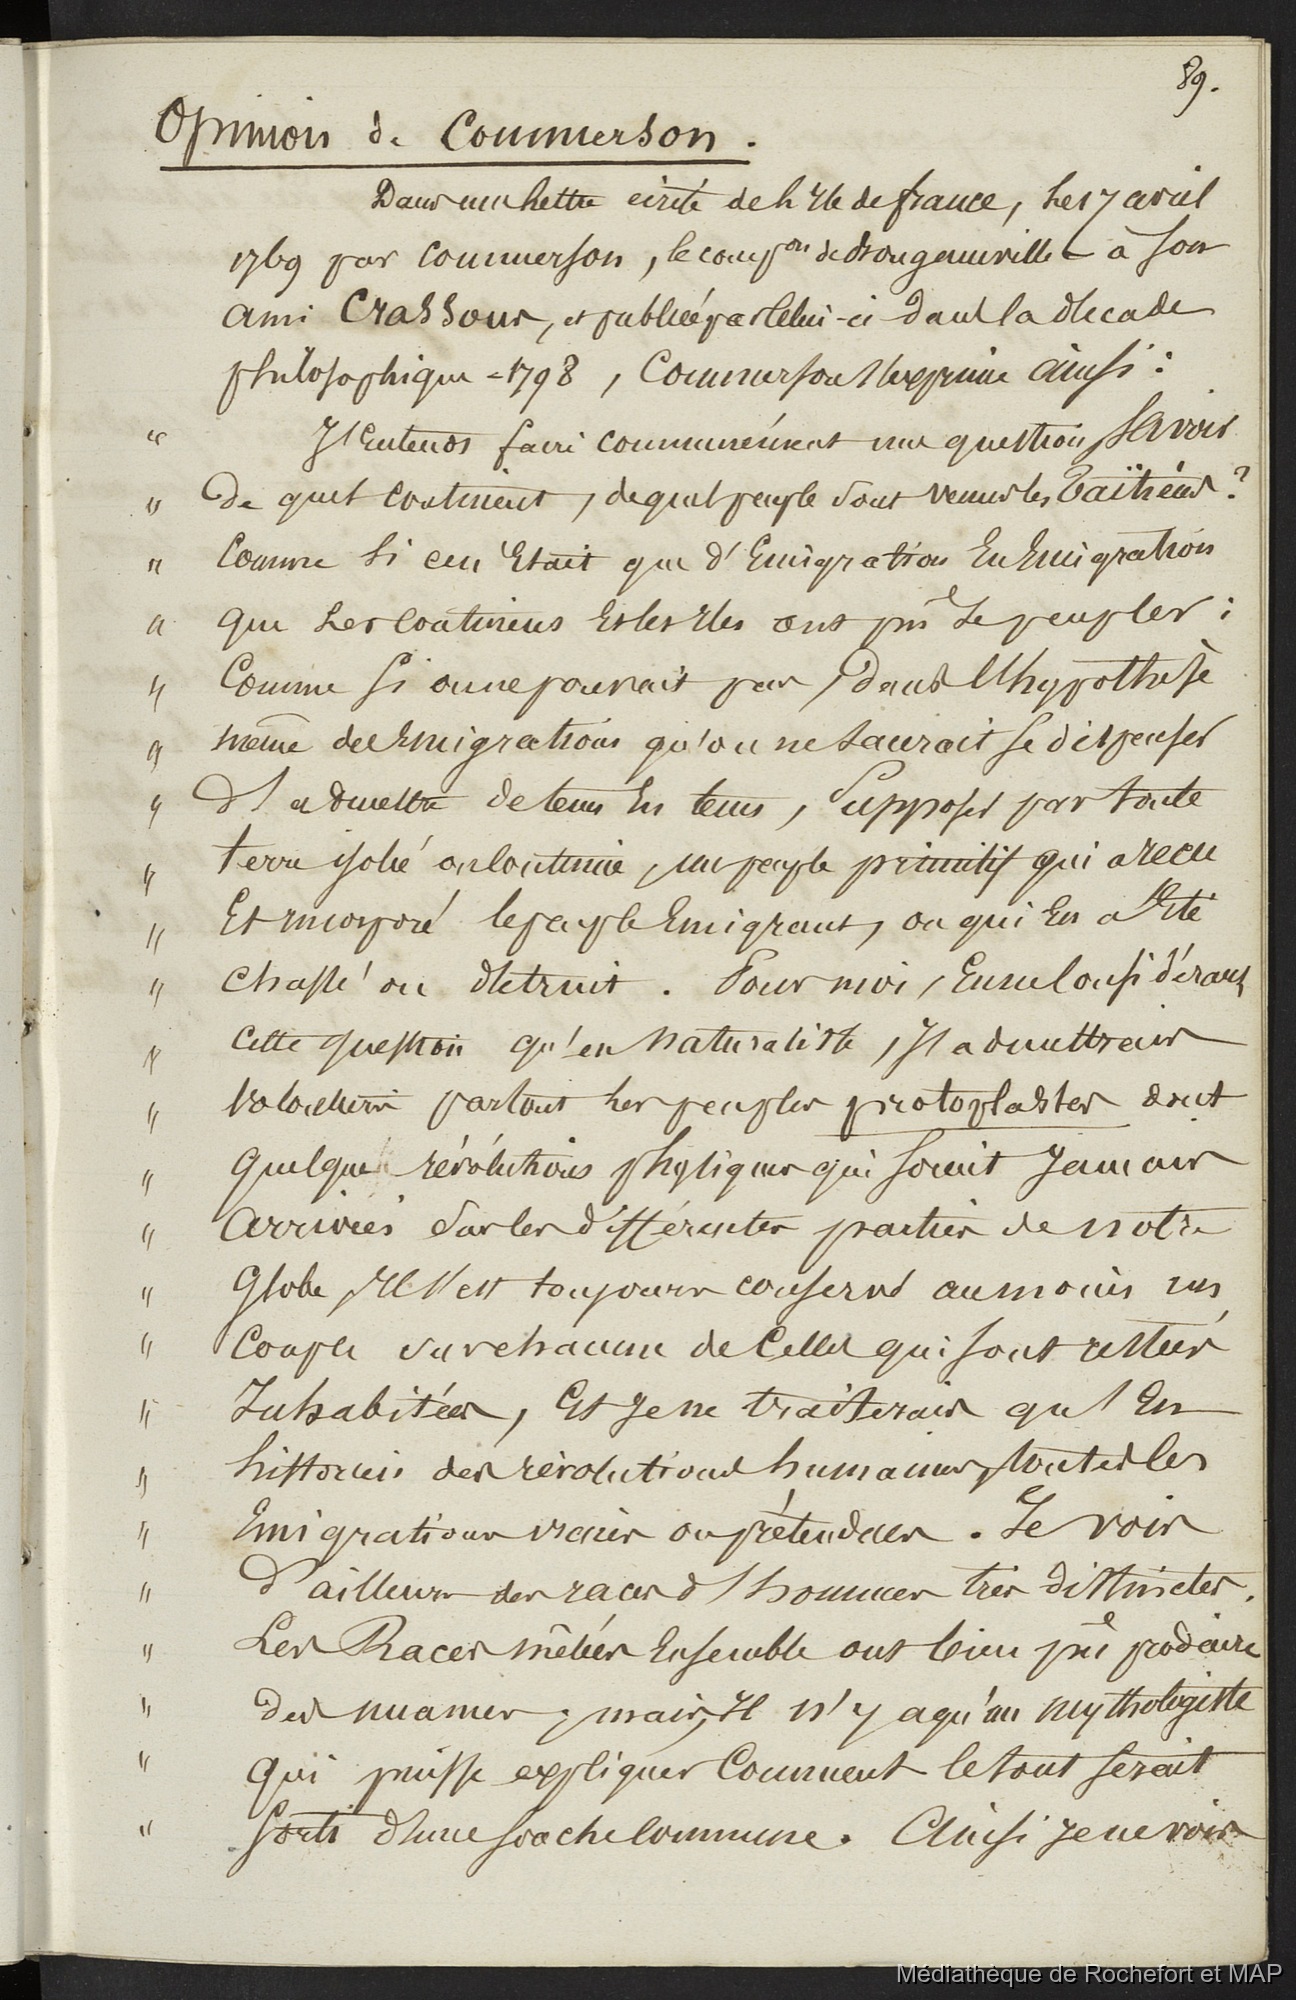 89.
Opinion de Commerson.
Dans une lettre écrite de l'Ile de france, le 17 avril
1769 par Commerson, le comp.on de Bougainville à son
ami Crassous, et publiée par celui-ci dans la décade
philosophique - 1798, Commerson s'exprime ainsi :
" J'Entends faire communément une question, savoir
" De quel continent, de quel peuple sont venus les Taïtiens ?
" Comme si ce n'Etait que d'Emigration En Emigration
" que les continens Et les Iles ont pû se peupler :
" Comme si on ne pouvait pas, dans l'hypothèse
" même des Emigrations qu'on ne saurait se dispenser
" d'admettre de tems En tems, supposer par toute
" terre isolée ou continue, un peuple primitif qui a recu
" Et incorporé le peuple Emigrant, ou qui En a Eté
" chassé ou détruit. Pour moi, En ne considérant
" cette question qu'en naturaliste, J'admettrais
" volontiers partout les peuples protoplastes dont
" quelques révolutions physiques qui soient Jamais
" arrivées sur les différentes parties de notre
" Globe, Il s'est toujours conservé au moins un
" Couple sur chacune de Celles qui sont restées
" Inhabitées, Et Je ne traiterais qu'En
" historien des révolutions humaines, toutes les
" Emigrations vraies ou prétendues. Je vois
" D'ailleurs des races d'hommes très distinctes.
" Les Races mêlées Ensemble ont bien pû produire
" des nuances ; mais, Il n'y a qu'un mythologiste
" qui puisse expliquer Comment le tout serait
" sorti d'une souche commune. Ainsi je ne vois
Médiathèque de Rochefort et MAP